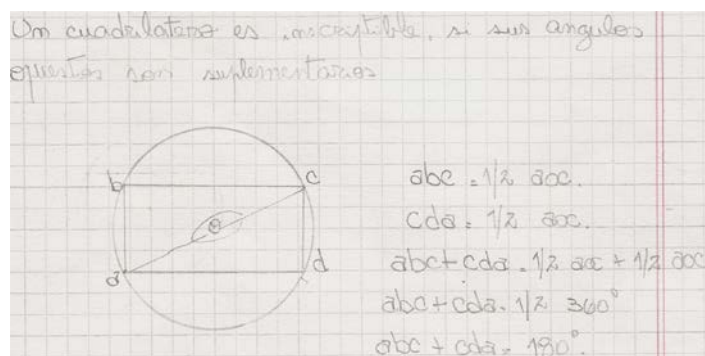 Un cuadrilatero es inscriptible, si sus angulos
opuestos son suplementarios
b
c
abc = 1/2 aoc.
o
cda = 1/2 aoc.
a
d
abc + cda = 1/2 aoc + 1/2 aoc
abc + cda = 1/2 360°
abc + cda = 180°.